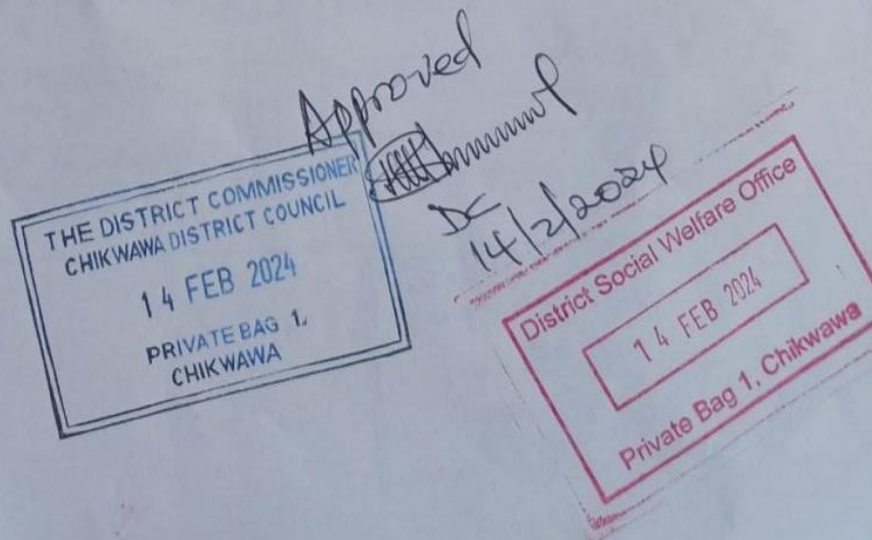 Approved
DC
14/2/2024
THE DISTRICT COMMISSIONER
CHIKWAWA DISTRICT COUNCIL
14 FEB 2024
PRIVATE BAG 1,
CHIKWAWA
District Social Welfare Office
14 FEB 2024
Private Bag 1, Chikwawa